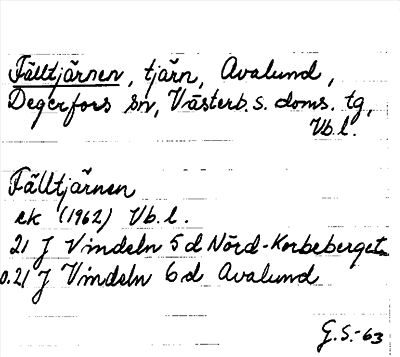 Fälltjärnen, tjärn, Avalund,
Degerfors sn, Västerb. s. doms. tg,
Vb. l.
Fälltjärnen
ek (1962) Vb. l.
21 J Vindeln 5 d Nörd-Korbeberget
o. 21 J Vindeln 6 d Avalund
G.S.-63